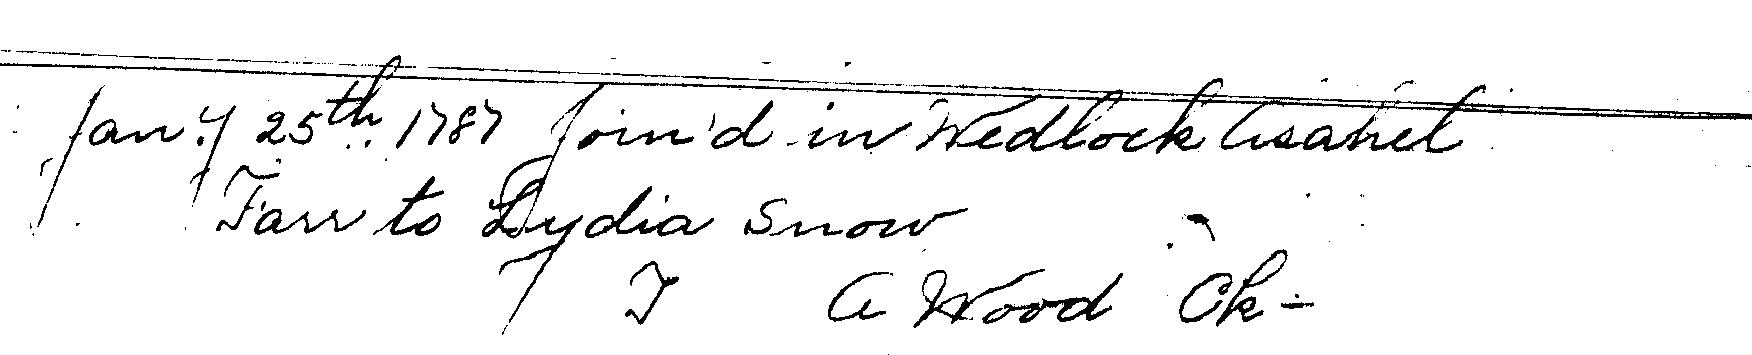 Jan.y 25th 1787 Join'd in Wedlock Asahel
Farr to Lydia Snow
T A Wood Ck-